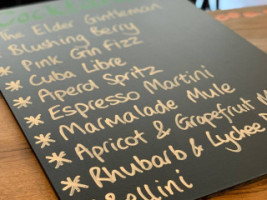 The Elder Gintleman
Blushing Berry
* Pink Gin Fizz
* Cuba Libre
* Aperol Spritz
* Espresso Martini
* Marmalade Mule
* Apricot & Grapefruit
* Rhubarb & Lychee
Bellini